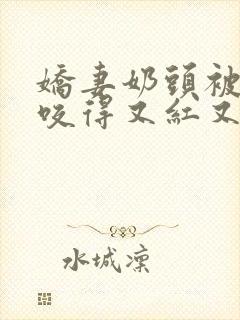 嬌妻奶頭被
咬得又紅又
水城凜